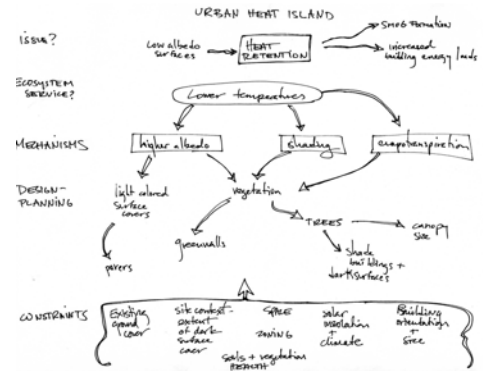 URBAN HEAT ISLAND
ISSUE?
Low albedo
surfaces
HEAT
RETENTION
SMOG FORMATION
increased
building energy loads
ECOSYSTEM
SERVICE?
Lower temperatures
MECHANISMS
higher albedo
shading
evapotranspiration
DESIGN-
PLANNING
light colored
surface
covers
vegetation
pavers
greenwalls
TREES
canopy
size
shade
buildings +
dark surfaces
CONSTRAINTS
Existing
ground
cover
site context -
extent
of dark
surface
cover
SPACE
ZONING
soils + vegetation
HEALTH
solar
insolation
+
climate
Building
orientation
+
size